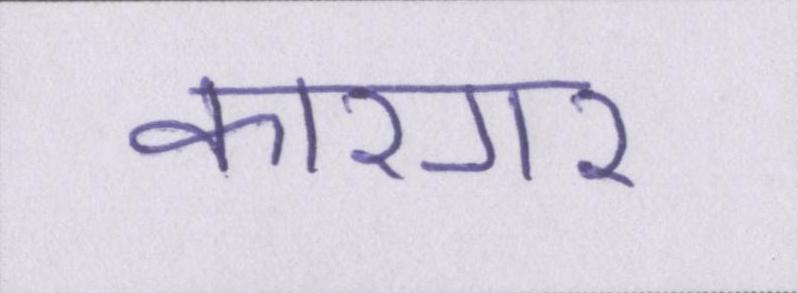 कारगर